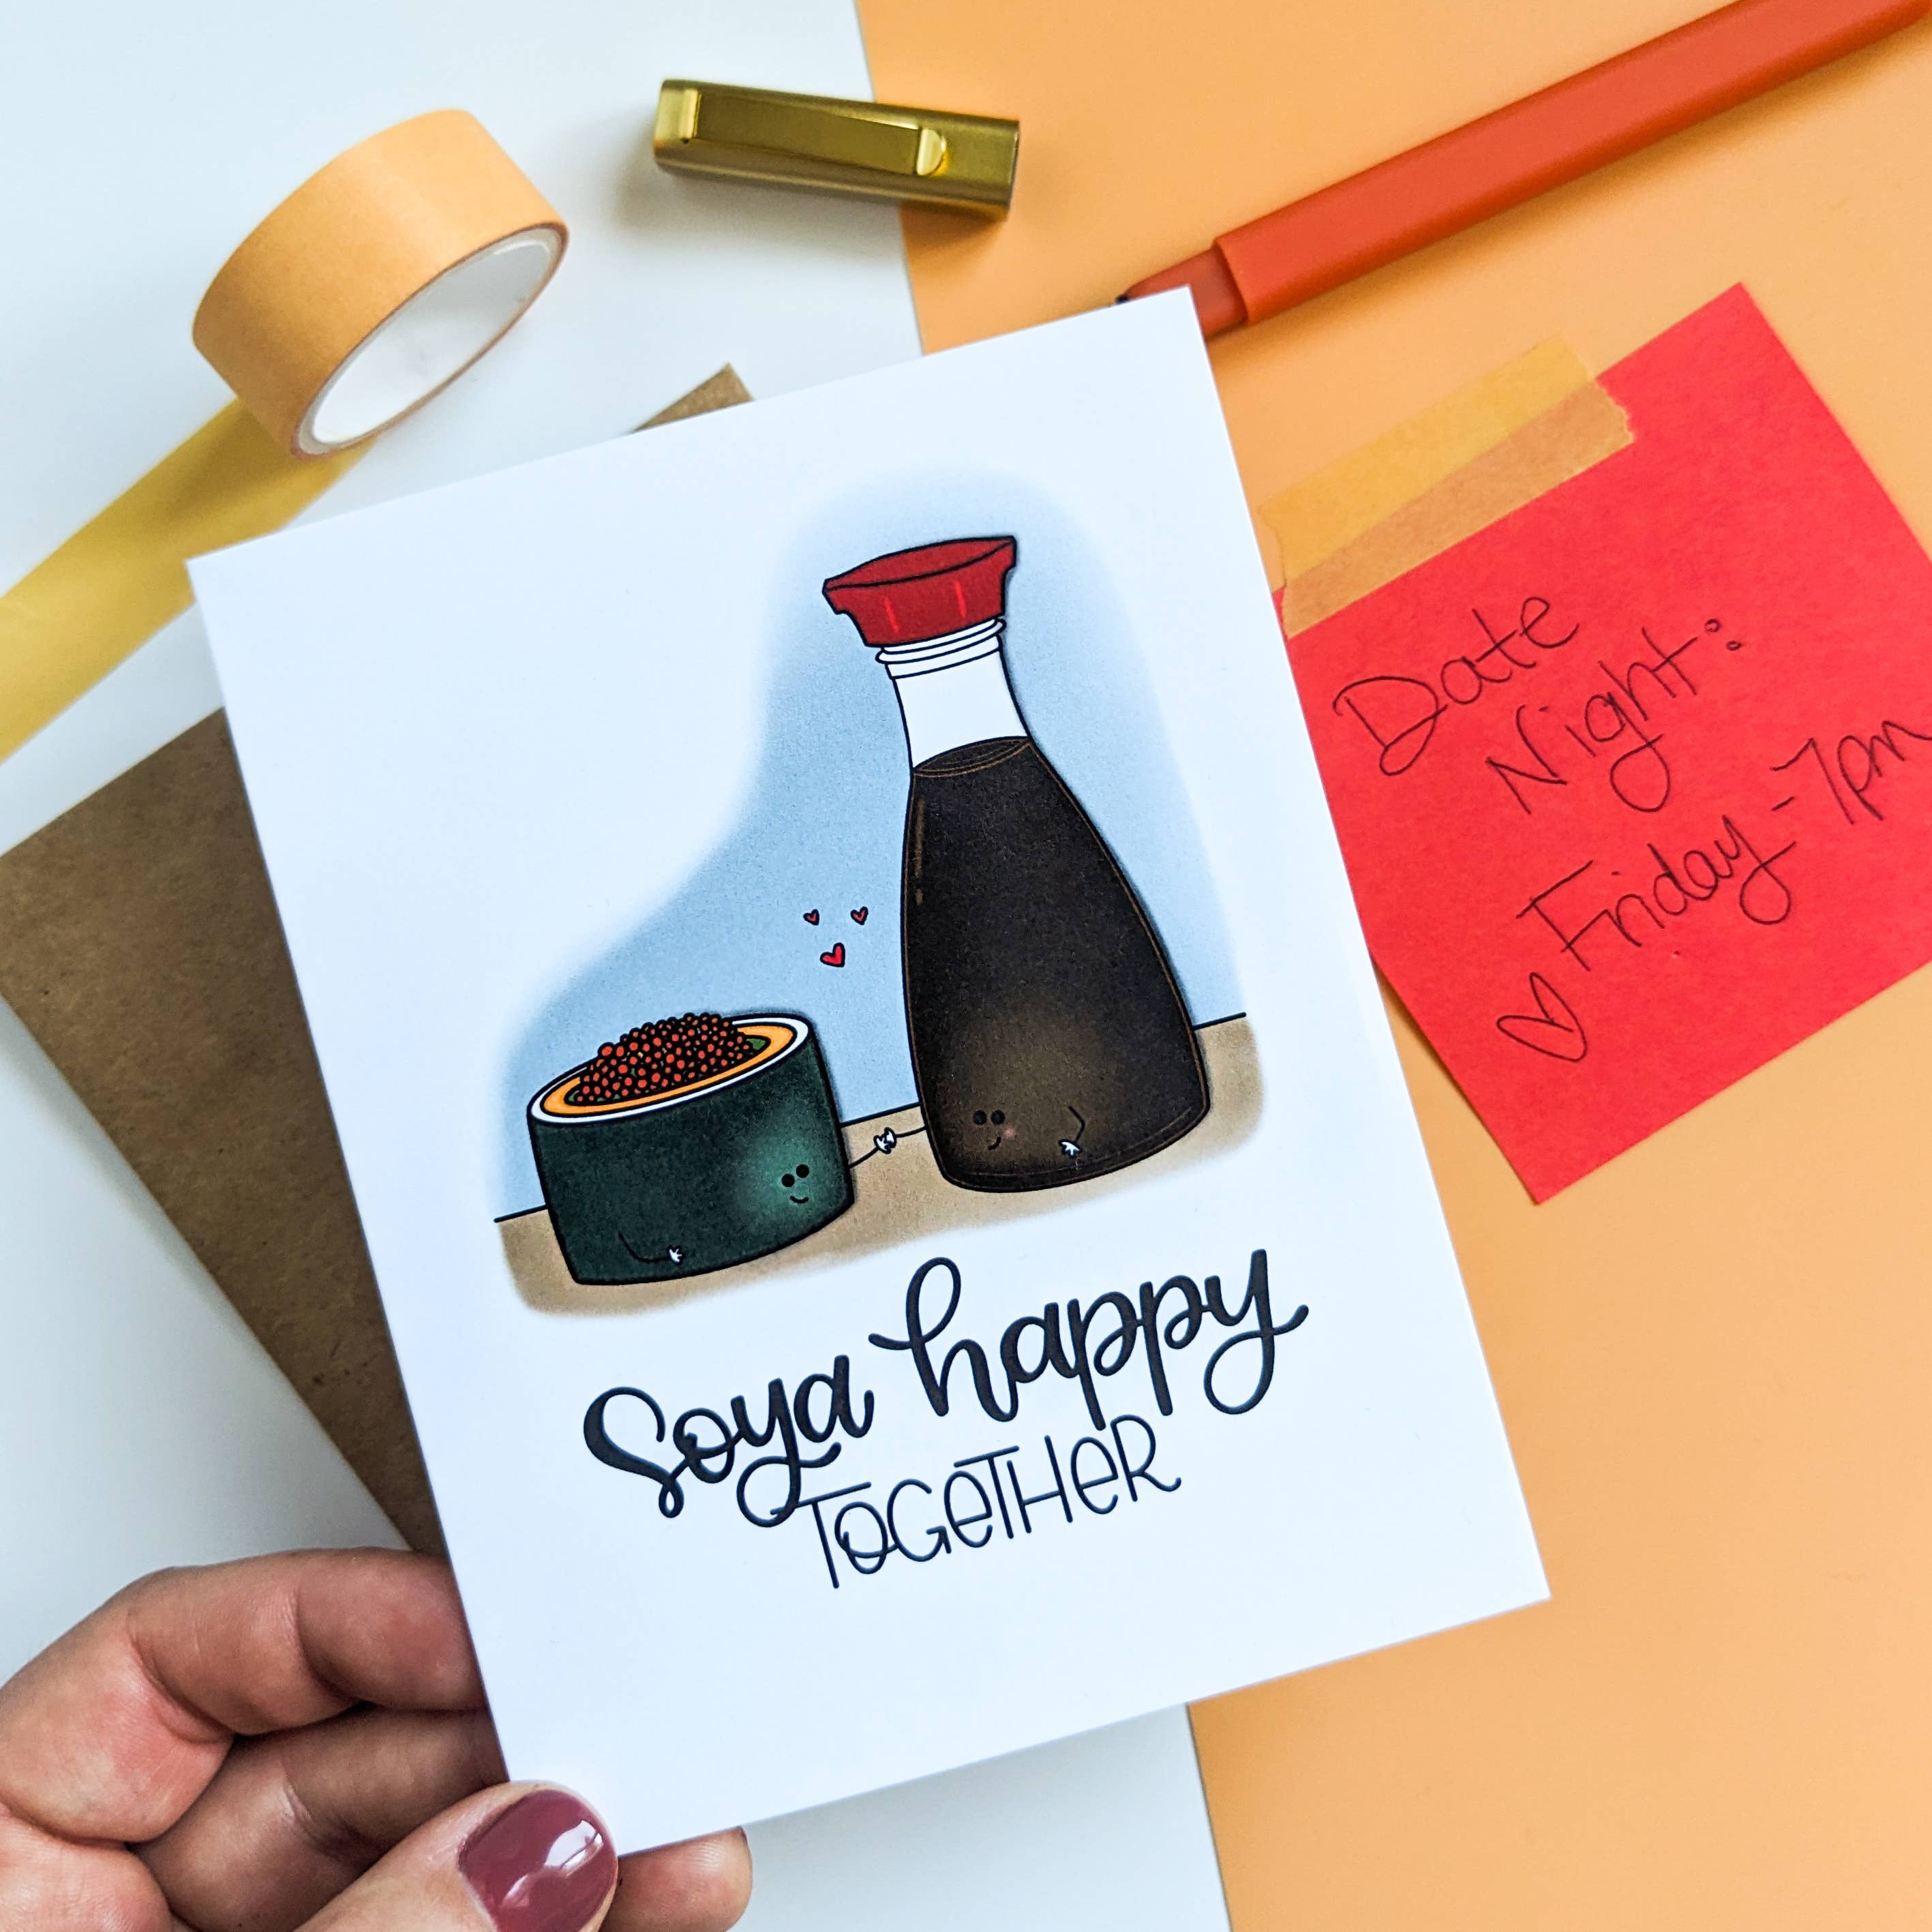 Soya happy
TOGETHER
Date
Night:
Friday - 7pm